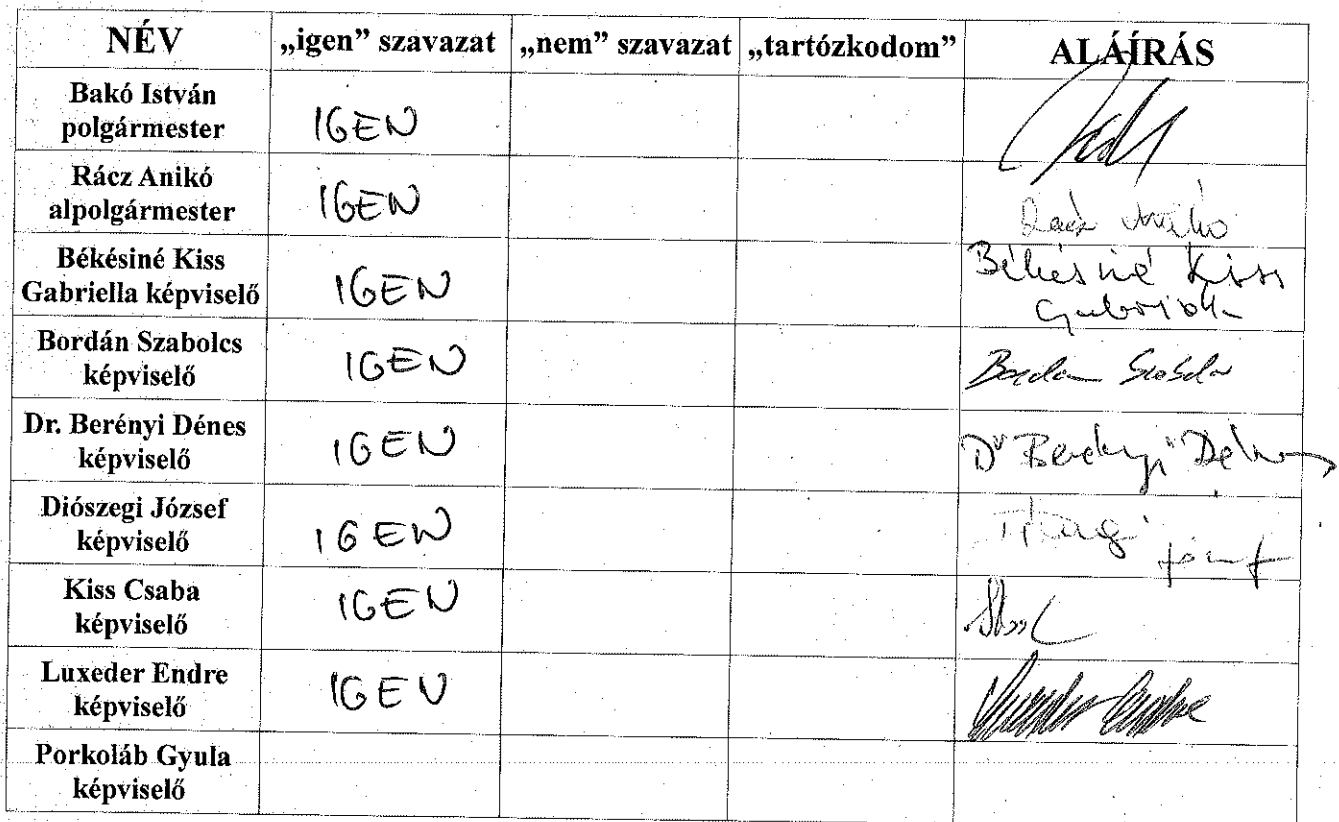 NÉV „igen” szavazat „nem” szavazat „tartózkodom” ALÁÍRÁS
Bakó István
polgármester IGEN
Rácz Anikó
alpolgármester IGEN Rácz Anikó
Békésiné Kiss
Gabriella képviselő IGEN Békésiné Kiss
Gabriella
Bordán Szabolcs
képviselő IGEN
Dr. Berényi Dénes
képviselő IGEN Dr Berényi Dénes
Diószegi József
képviselő IGEN
Kiss Csaba
képviselő IGEN
Luxeder Endre
képviselő IGEN
Porkoláb Gyula
képviselő